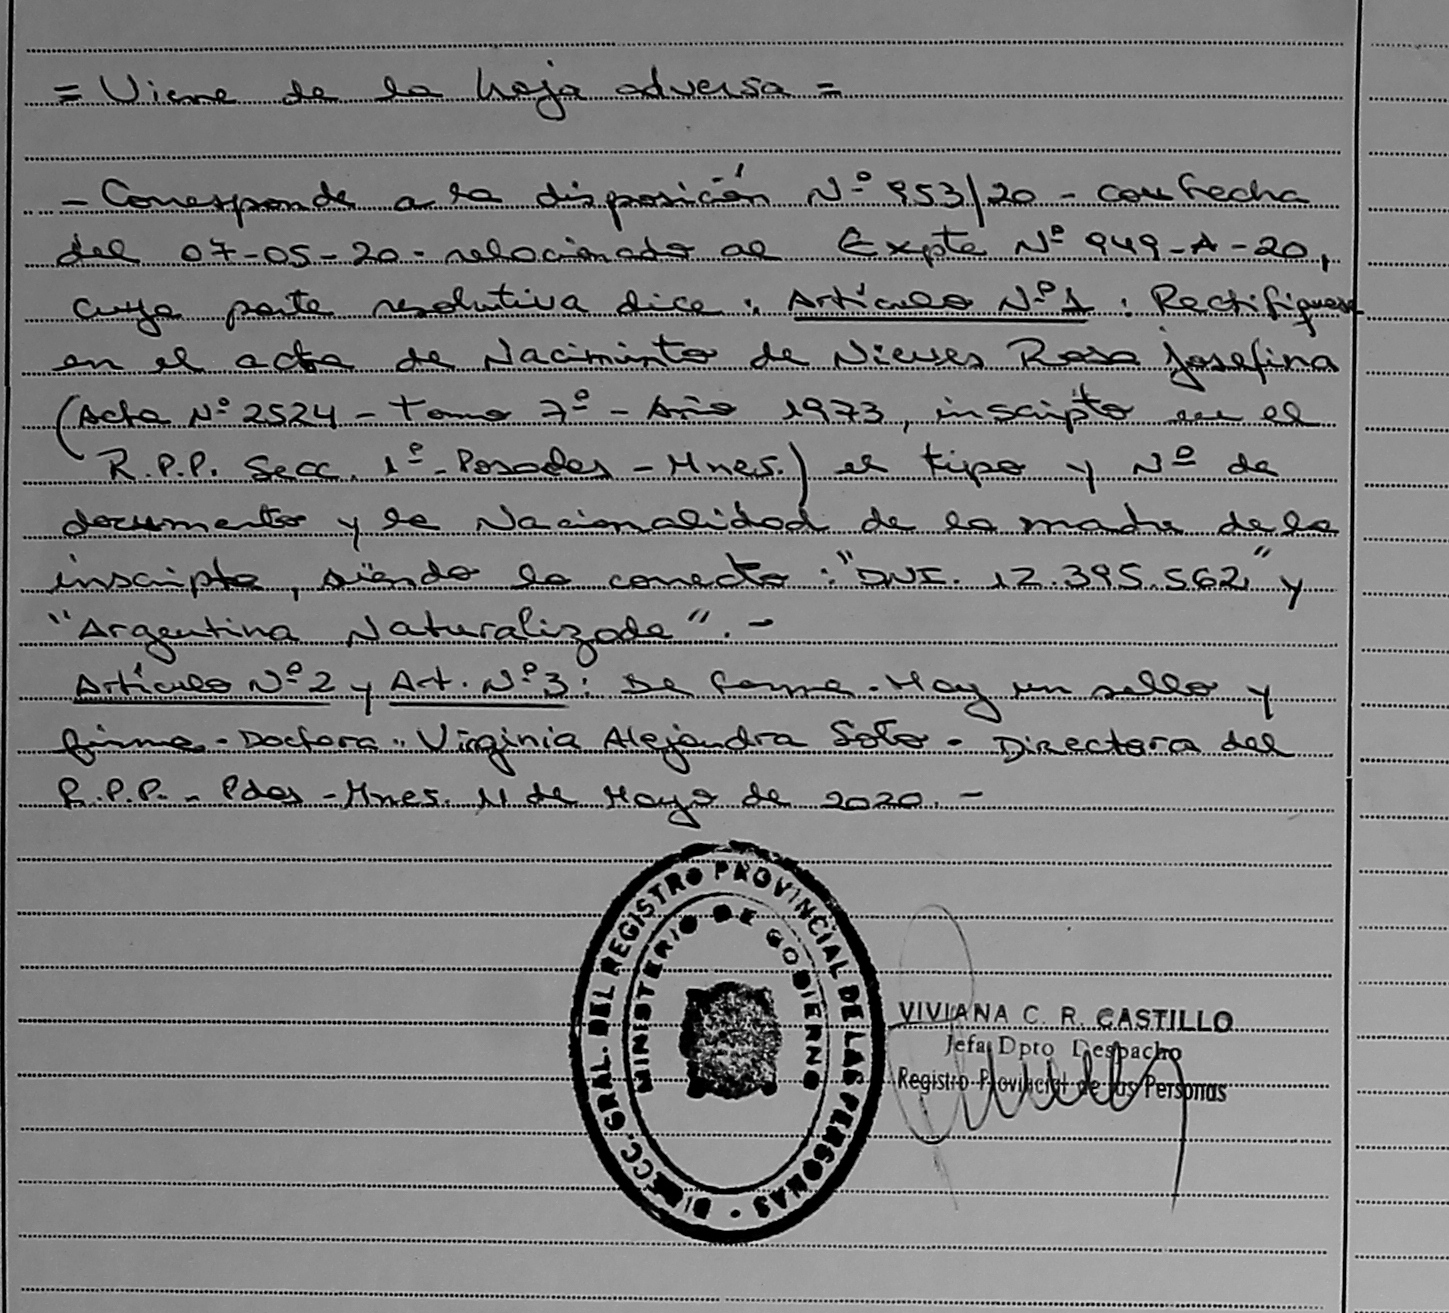 = Viene de la hoja adversa =
- Corresponde a la disposición Nº 953/20 - con fecha
del 07-05-20 - relacionado al Expte Nº 949-A-20,
cuya parte resolutiva dice : Artículo Nº1 : Rectifiquese
en el acta de Nacimiento de Nieves Rosa Josefina
(Acta Nº 2524 - Tomo 7º - Año 1973, inscripto en el
R.P.P. Secc. 1º - Posadas - Mnes.) el tipo y Nº de
documento y la Nacionalidad de la madre de la
inscripta, siendo lo correcto : "DNI. 12.395.562" y
"Argentina Naturalizada". -
Artículo Nº2 y Art. Nº3 : De forma. Hay un sello y
firma - Doctora. Virginia Alejandra Soto - Directora del
R.P.P. - Pdas - Mnes. 11 de Mayo de 2020. -
DIRECC. GRAL. DEL REGISTRO PROVINCIAL DE LAS PERSONAS -
MINISTERIO DE GOBIERNO
VIVIANA C. R. CASTILLO
Jefa Dpto Despacho
Registro Provincial de las Personas